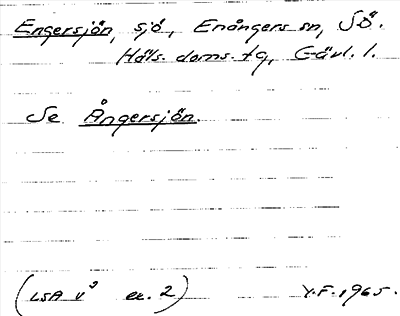 Engersjön, sjö, Enångers sn, SÖ.
Häls. doms. tg, Gävl. l.
Se Ångersjön.
(LSA v³ ex. 2) Y.F. 1965.